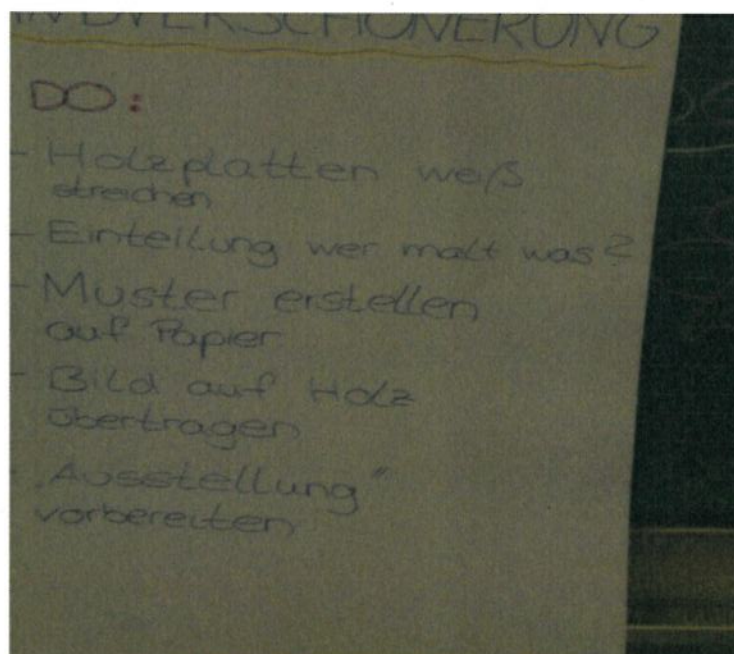 ANDVERSCHÖNERUNG
DO:
- Holzplatten weiß
streichen
- Einteilung wer malt was?
- Muster erstellen
auf Papier
- Bild auf Holz
übertragen
- „Ausstellung"
vorbereiten